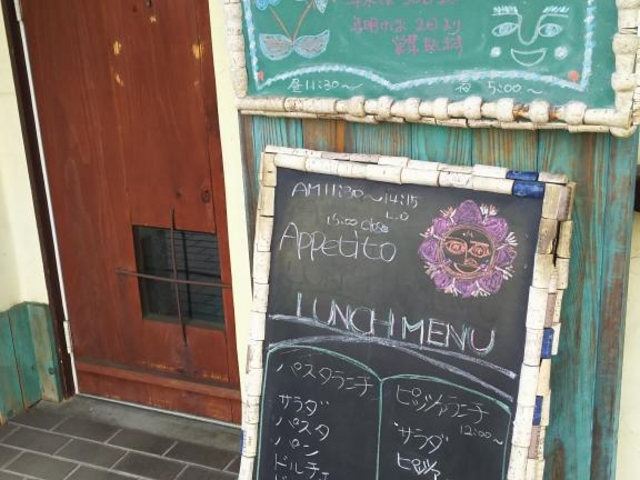 年明けは2日より
営業します
昼11:30〜 夜5:00〜
AM11:30〜14:15
L.O
15:00 close
Appetito
LUNCH MENU
パスタランチ
サラダ
パスタ
パン
ドルチェ
ピッツァランチ
12:00〜
サラダ
ピッツァ